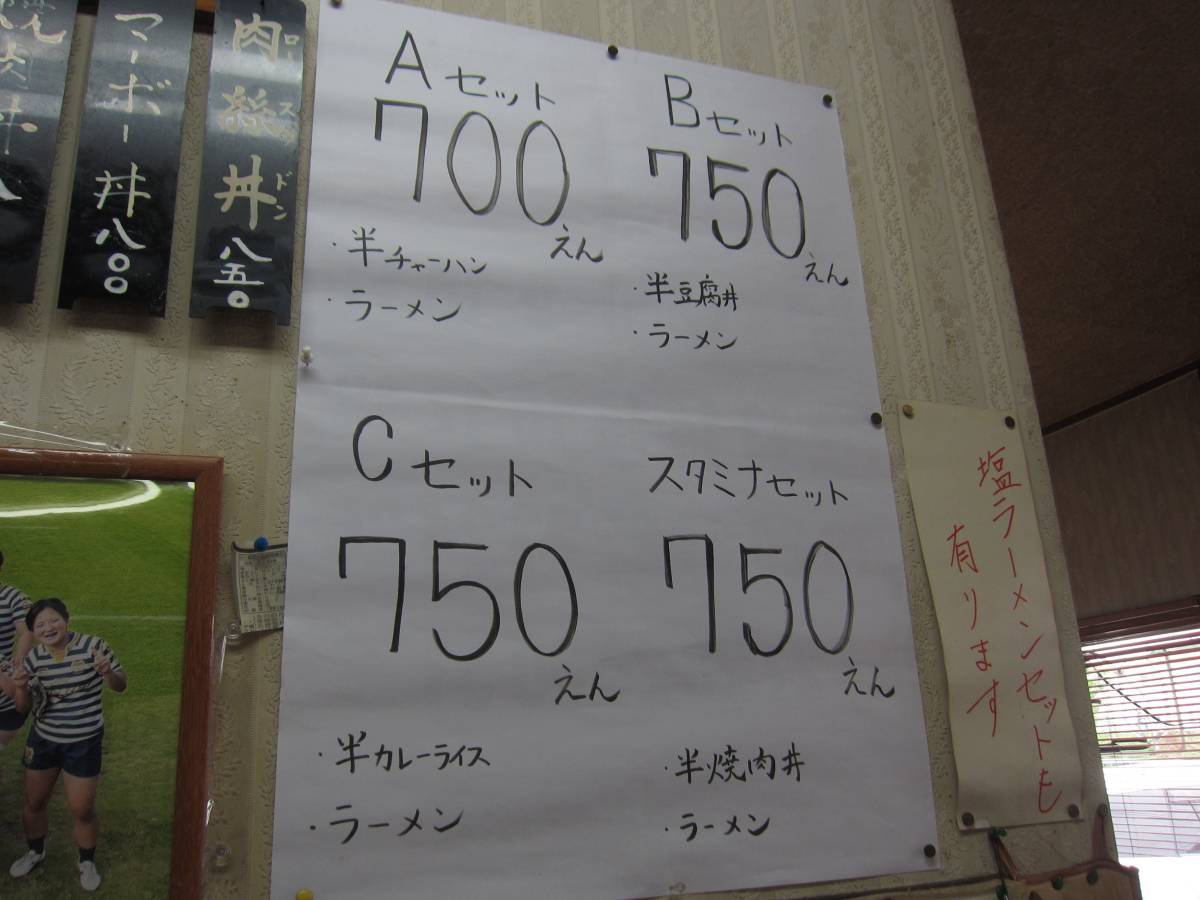 マーボー丼 八〇〇
肉絲丼 八五〇
ロースドン
Aセット
700えん
・半チャーハン
・ラーメン
Bセット
750えん
・半豆腐丼
・ラーメン
Cセット
750えん
・半カレーライス
・ラーメン
スタミナセット
750えん
・半焼肉丼
・ラーメン
塩ラーメンセットも
有ります